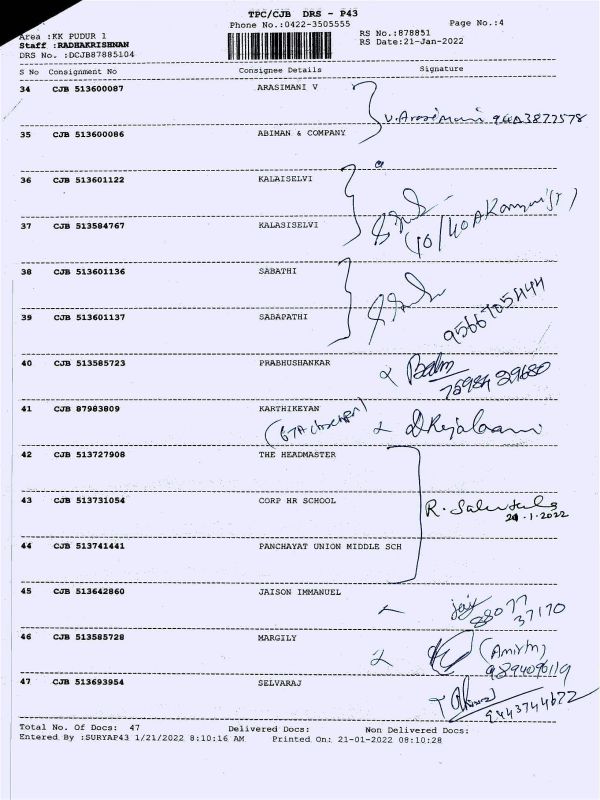 TPC/CJB DRS - P43
Area :KK PUDUR 1
Phone No.:0422-3505555
Page No.:4
Staff :RADHAKRISHNAN
RS No.:878851
DRS No. :DCJB87885104
RS Date:21-Jan-2022
S No Consignment No Consignee Details Signature
34 CJB 513600087 ARASIMANI V
V. Arasimani
35 CJB 513600086 ABIMAN & COMPANY
36 CJB 513601122 KALAISELVI
37 CJB 513584767 KALASISELVI
38 CJB 513601136 SABATHI
39 CJB 513601137 SABAPATHI
9566705444
40 CJB 513585723 PRABHUSHANKAR
41 CJB 87983809 KARTHIKEYAN
42 CJB 513727908 THE HEADMASTER
43 CJB 513731054 CORP HR SCHOOL
R.
21.1.2022
44 CJB 513741441 PANCHAYAT UNION MIDDLE SCH
45 CJB 513642860 JAISON IMMANUEL
88077
37170
46 CJB 513585728 MARGILY
9894096119
47 CJB 513693954 SELVARAJ
9443744622
Total No. Of Docs: 47 Delivered Docs: Non Delivered Docs:
Entered By :SURYAP43 1/21/2022 8:10:16 AM Printed On: 21-01-2022 08:10:28